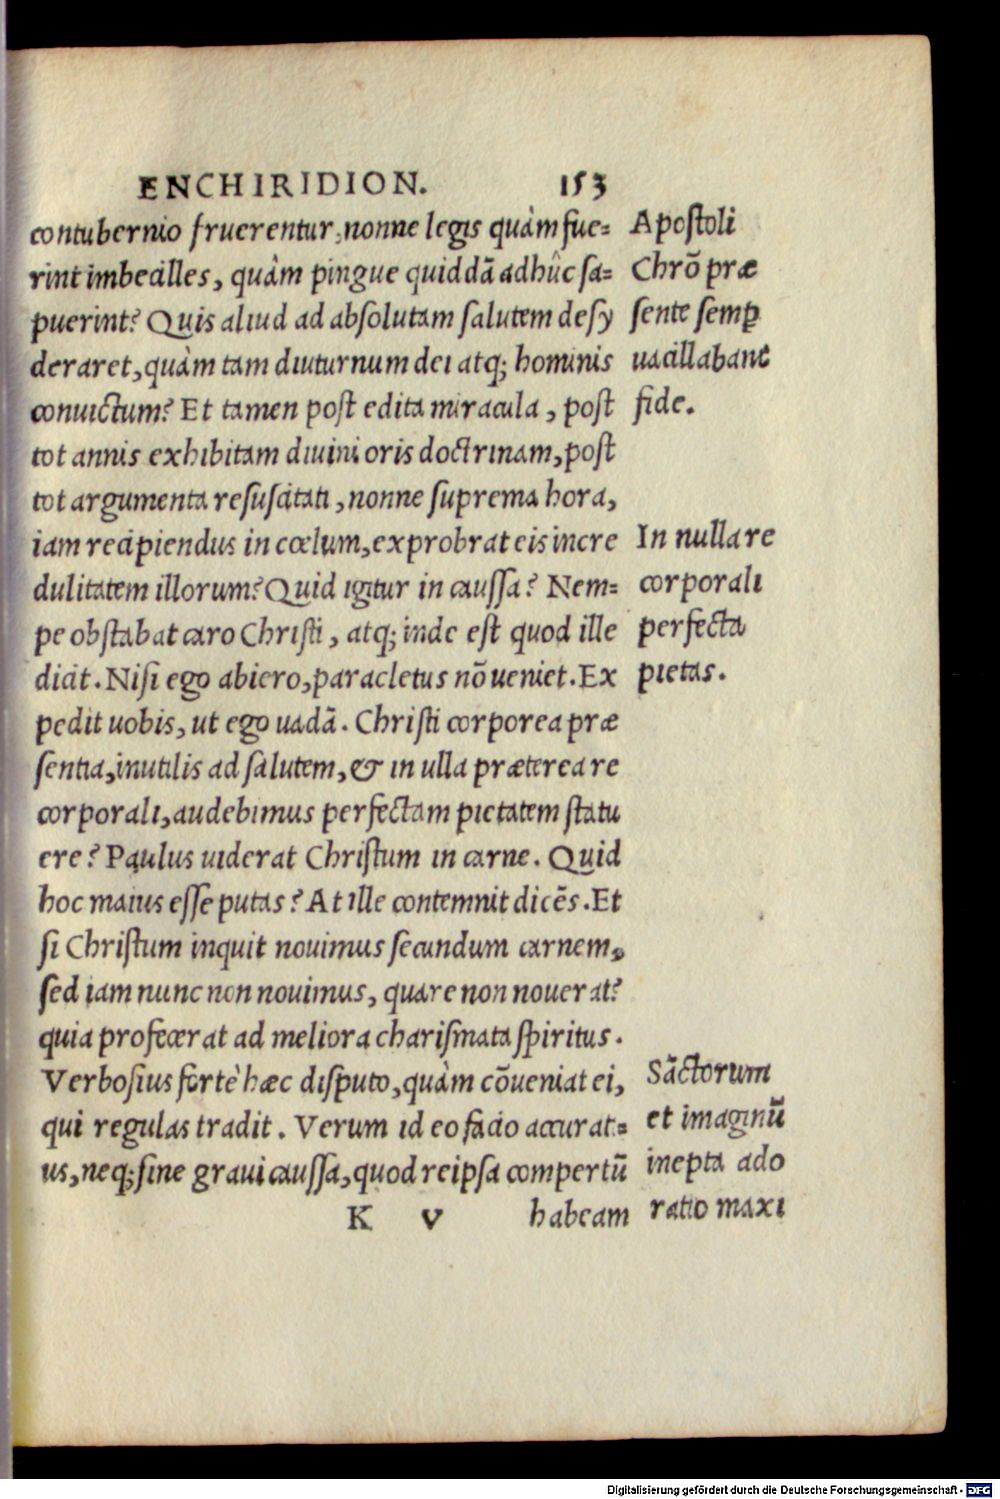 ENCHIRIDION. 153
contubernio fruerentur, nonne legis quàm fue=
rint imbecilles, quàm pingue quiddã adhûc sa=
puerint? Quis aliud ad absolutam salutem desy
deraret, quàm tam diuturnum dei atq; hominis
conuictum? Et tamen post edita miracula, post
tot annis exhibitam diuini oris doctrinam, post
tot argumenta resuscitati, nonne suprema hora,
iam recipiendus in cœlum, exprobrat eis incre
dulitatem illorum? Quid igitur in caussa? Nem=
pe obstabat caro Christi, atq; inde est quod ille
dicit. Nisi ego abiero, paracletus nõ ueniet. Ex
pedit uobis, ut ego uadã. Christi corporea præ
sentia, inutilis ad salutem, & in ulla præterea re
corporali, audebimus perfectam pietatem statu
ere? Paulus uiderat Christum in carne. Quid
hoc maius esse putas? At ille contemnit dicẽs. Et
si Christum inquit nouimus secundum carnem,
sed iam nunc non nouimus, quare non nouerat?
quia profecerat ad meliora charismata spiritus.
Verbosius fortè hæc disputo, quàm cõueniat ei,
qui regulas tradit. Verum id eo facio accurat=
us, neq; sine graui caussa, quod reipsa compertũ
K v habeam
Apostoli
Chrõ præ
sente semꝑ
uacillabant
fide.
In nulla re
corporali
perfecta
pietas.
Sãctorum
et imaginũ
inepta ado
ratio maxi
Digitalisierung gefördert durch die Deutsche Forschungsgemeinschaft - DFG